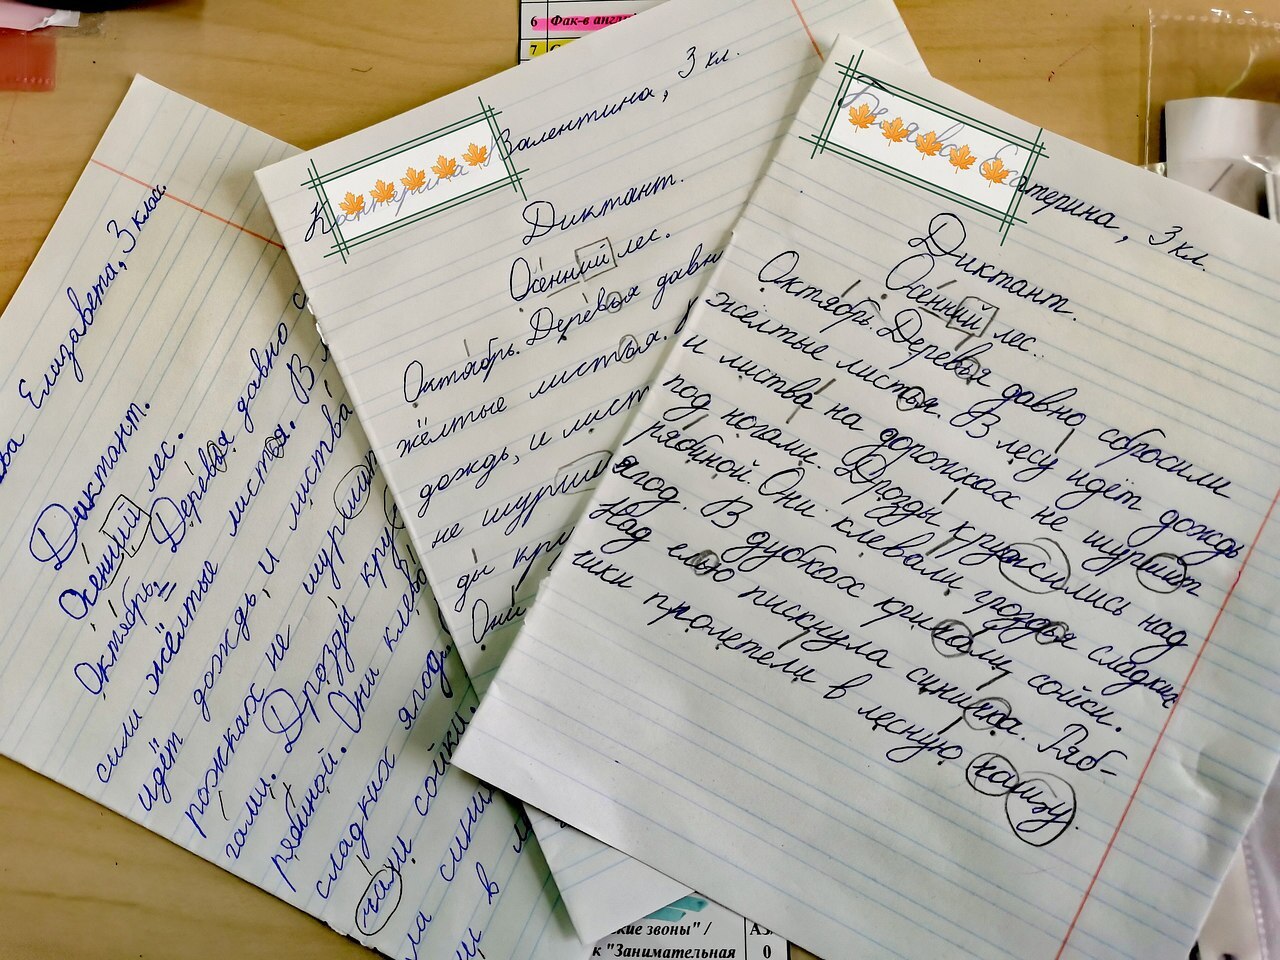 6 Фак-в англ
7
Елизавета, 3 клас.
Диктант.
Осенний лес.
Октябрь. Деревья давно с
сили жёлтые листья. В л
идёт дождь, и листва
рожках не шуршит
гами. Дрозды кру
рябиной. Они клева
сладких ягод.
чали сойки.
ла синич
в л
Валентина, 3 кл.
Диктант.
Осенний лес.
Октябрь. Деревья давн
жёлтые листья.
дождь, и лист
не шурши
ды кру
Они
Екатерина, 3 кл.
Диктант.
Осенний лес.
Октябрь. Деревья давно сбросили
жёлтые листья. В лесу идёт дождь
и листва на дорожках не шуршит
под ногами. Дрозды кружились над
рябиной. Они клевали гроздья сладких
ягод. В дубках кричали сойки.
Над елью пискнула синичка. Ряб-
чики пролетели в лесную чащу.
кие звоны" /
к "Занимательная
АЗ
0